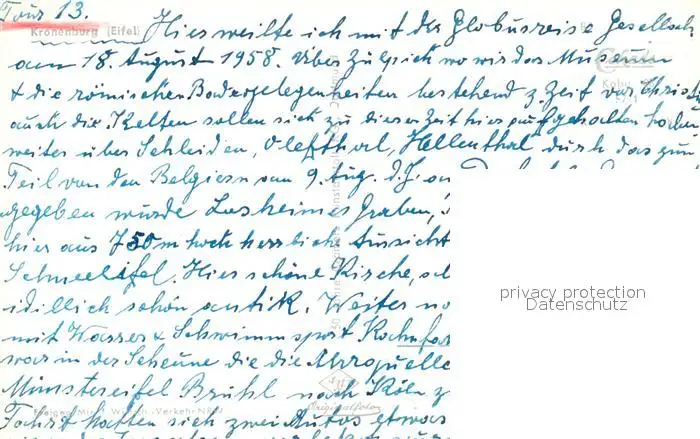 Tour 13.
Kronenburg (Eifel) Hier weilte ich mit der Globusreise Gesellsch
am 18. August 1958. Über Zülpich wo wir das Museum
& die römischen Badegelegenheiten bestehend z. Zeit vor Christ
auch die Kelten sollen sich zu dieser Zeit hier aufgehalten haben
weiter über Schleiden, Oleftal, Hellenthal durch das zum
Teil von den Belgiern am 9. Aug. d. J. an
gegeben wurde Losheimer Graben,
hier aus 750 m hoch herrliche Aussicht
Schneeeifel. Hier schöne Kirche,
idillich schön antik. Weiter
mit Wasser & Schwimmsport
war in der Scheune die die Ahrquelle
Münstereifel Brühl nach Köln z
hatten sich zwei Autos etwas
Originalfoto
privacy protection
Datenschutz